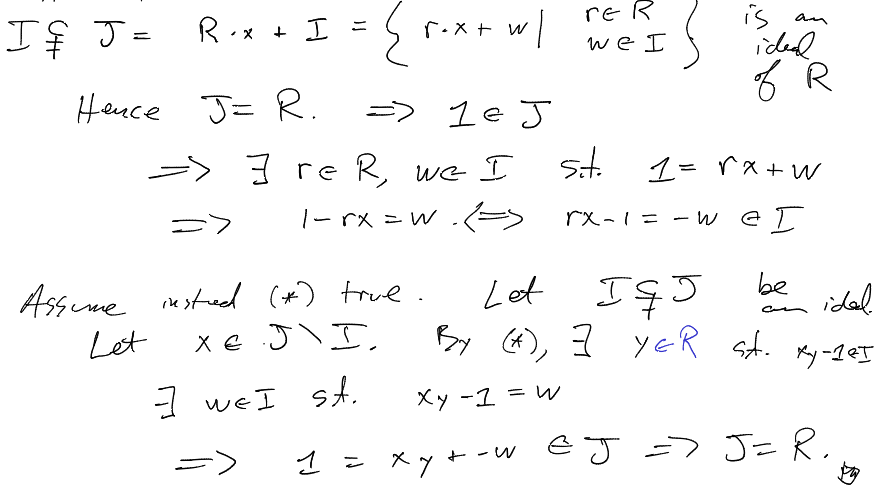 I ⊊ J = R·x + I = { r·x + w | r∈R w∈I } is an ideal of R
Hence J = R. ⇒ 1 ∈ J
⇒ ∃ r∈R, w∈I s.t. 1 = rx + w
⇒ 1 - rx = w. ⇔ rx - 1 = -w ∈ I
Assume instead (*) true. Let I ⊊ J be an ideal.
Let x ∈ J \ I. By (*), ∃ y∈R st. xy-1∈I
∃ w∈I st. xy - 1 = w
⇒ 1 = xy + -w ∈ J ⇒ J = R.